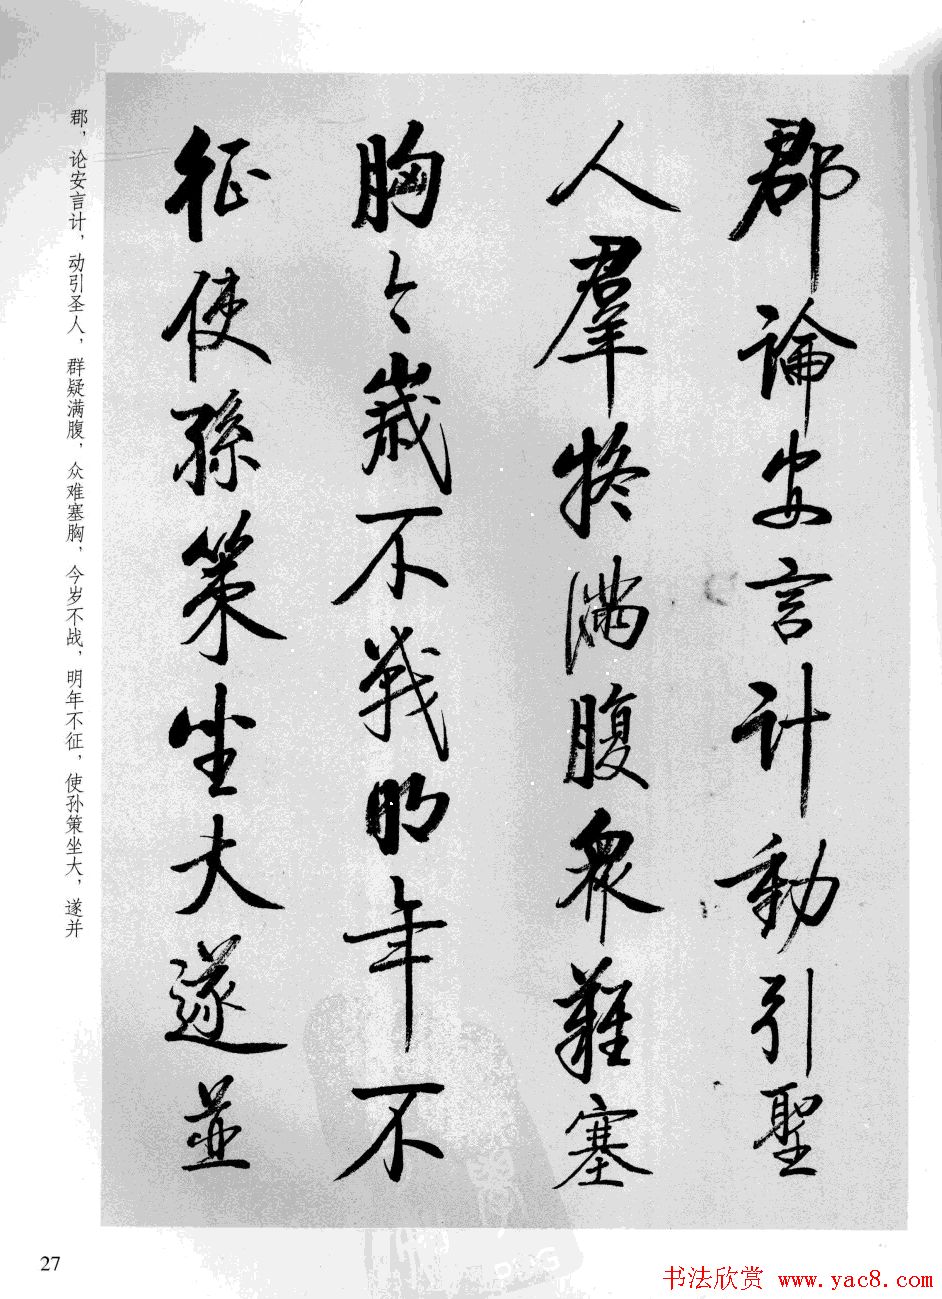 郡論安言計動引聖
人羣疑滿腹衆難塞
胸今歲不戰明年不
征使孫策坐大遂並
郡，论安言计，动引圣人，群疑满腹，众难塞胸，今岁不战，明年不征，使孙策坐大，遂并
27
书法欣赏 www.yac8.com